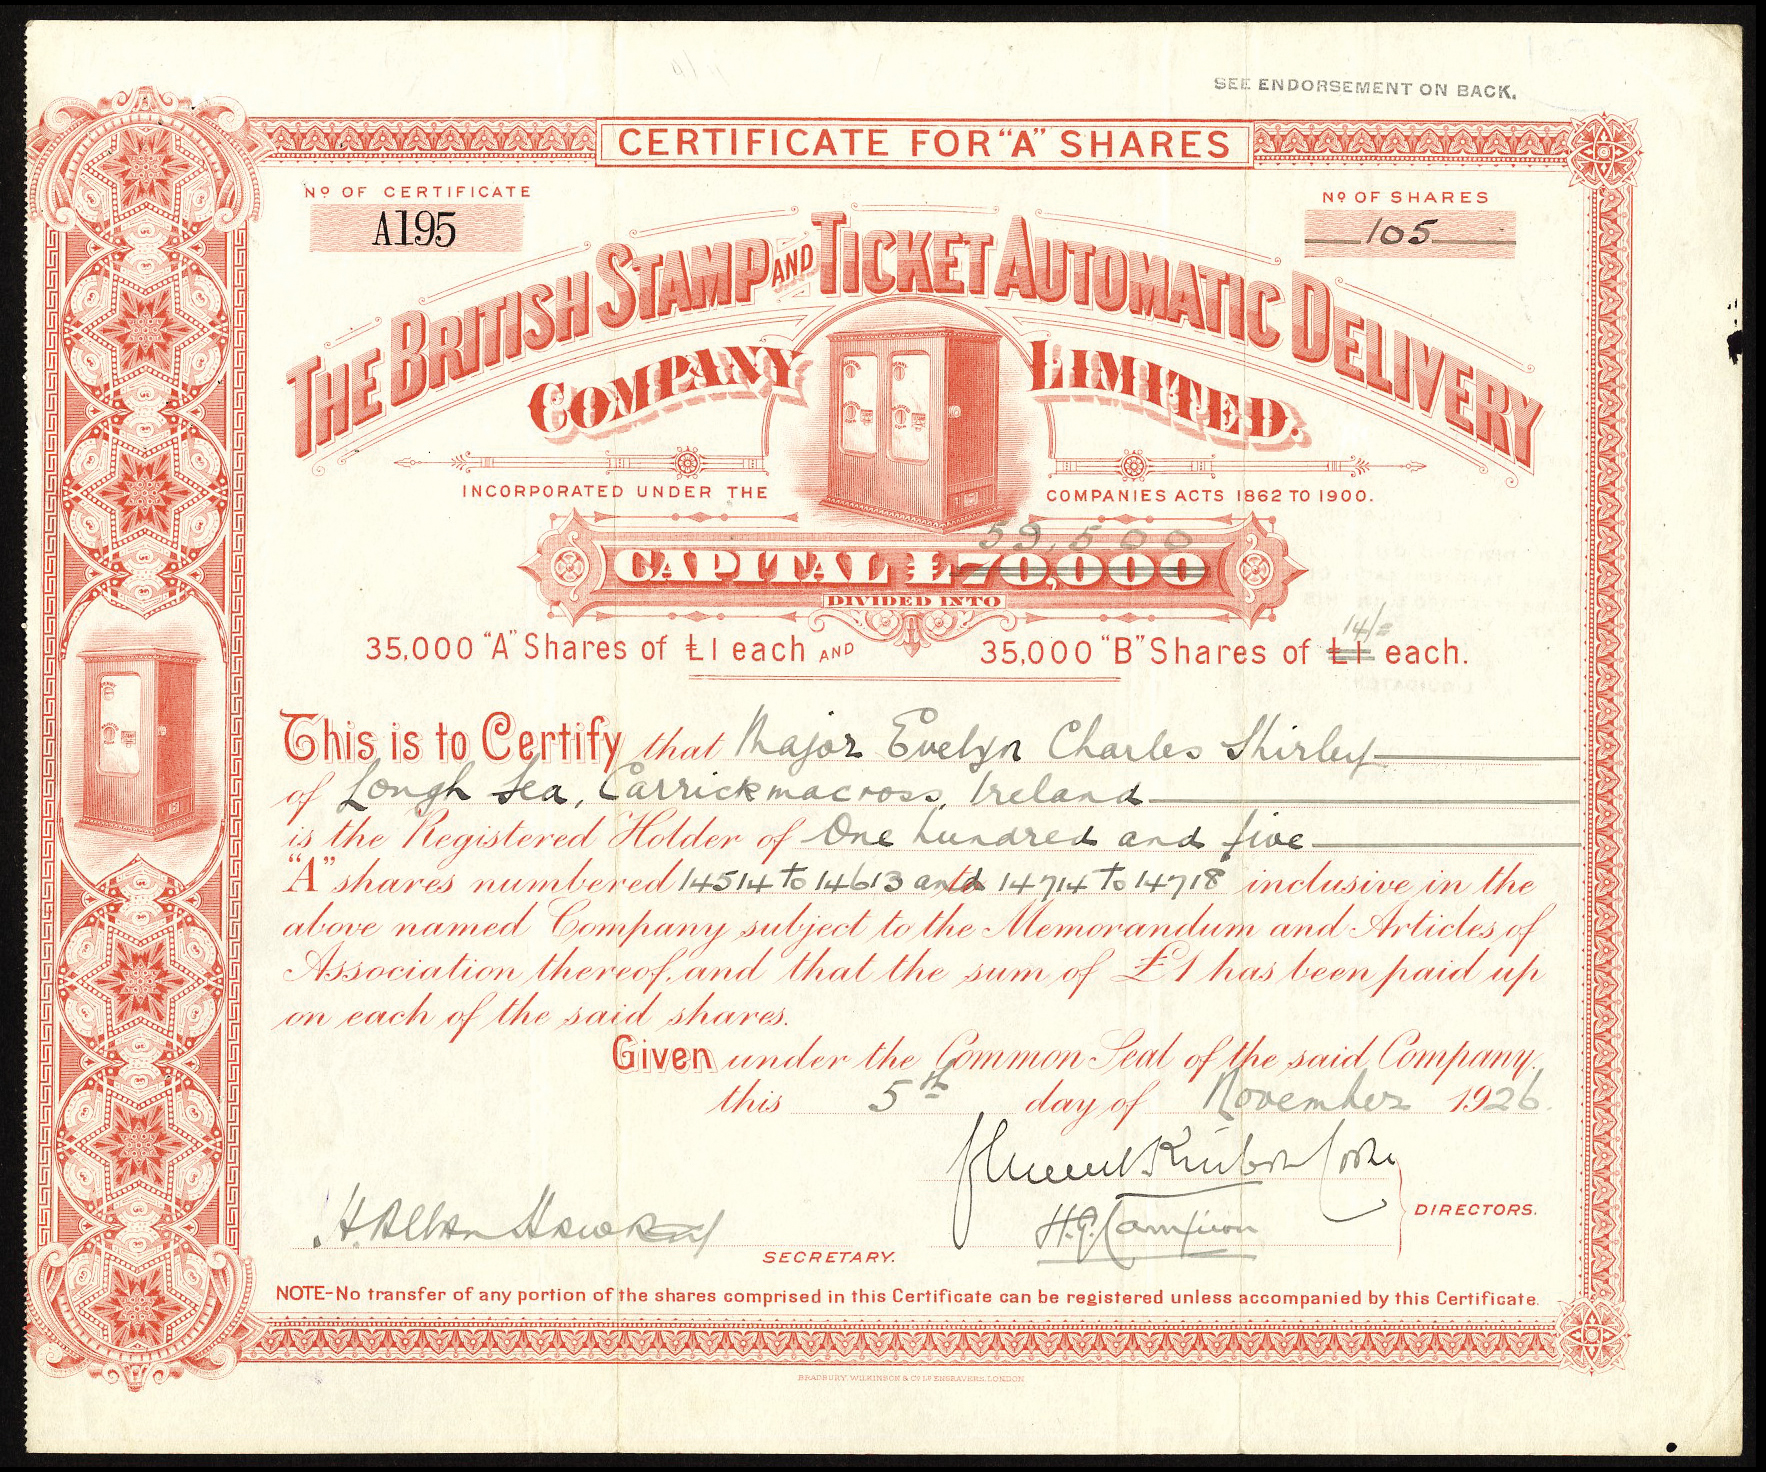 SEE ENDORSEMENT ON BACK.
CERTIFICATE FOR "A" SHARES
No OF CERTIFICATE
A195
No OF SHARES
105
THE BRITISH STAMP AND TICKET AUTOMATIC DELIVERY
COMPANY LIMITED.
INCORPORATED UNDER THE COMPANIES ACTS 1862 TO 1900.
59,500
CAPITAL £70,000
DIVIDED INTO
14/=
35,000 "A" Shares of £1 each AND 35,000 "B" Shares of £1 each.
This is to Certify that Major Evelyn Charles Shirley
of Lough Fea, Carrickmacross, Ireland
is the Registered Holder of One hundred and five
"A" shares numbered 14514 to 14613 and 14714 to 14718 inclusive in the
above named Company subject to the Memorandum and Articles of
Association thereof, and that the sum of £1 has been paid up
on each of the said shares.
Given under the Common Seal of the said Company.
this 5th day of November 1926.
DIRECTORS.
H.G. Campion
SECRETARY.
NOTE-No transfer of any portion of the shares comprised in this Certificate can be registered unless accompanied by this Certificate.
BRADBURY, WILKINSON & Co Ld ENGRAVERS, LONDON